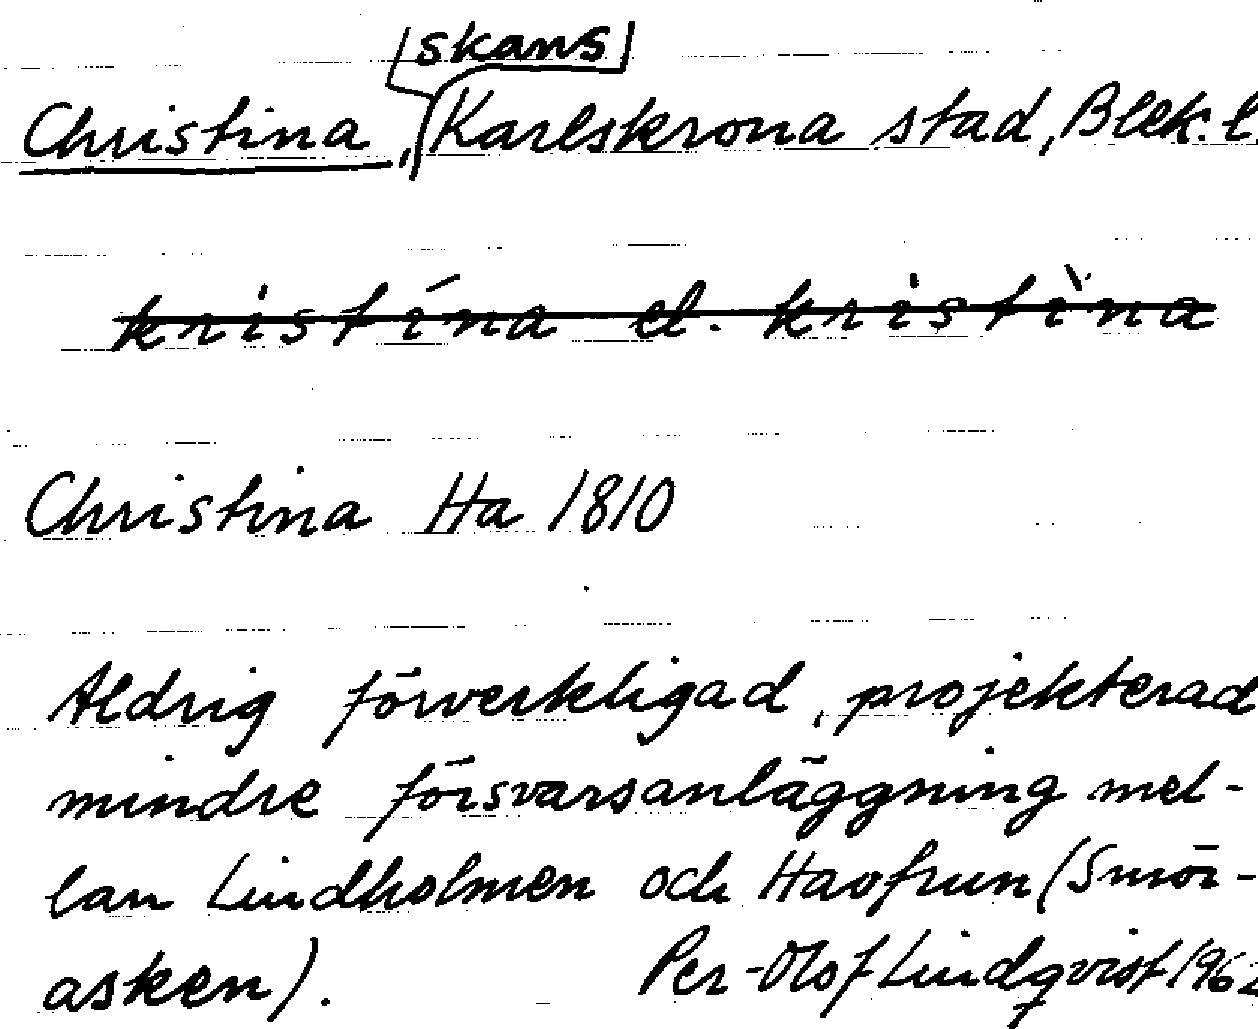 skans
Christina, Karlskrona stad, Blek. l.
kristína el. kristìna
Christina Ha 1810
Aldrig förverkligad, projekterad
mindre försvarsanläggning mel-
lan Lindholmen och Havfrun (Smör-
asken). Per-Olof Lindqvist 1962